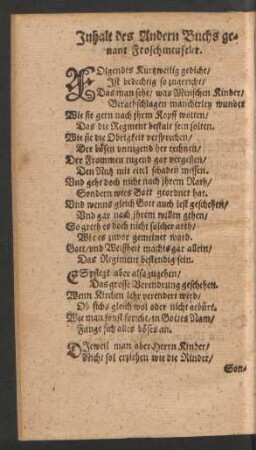 Inhalt des Andern Buchs ge-
nant Froschmeuseler.
FOlgendes Kurtzweilig gedicht/
Ist bedechtig so zugericht/
Das man sehe/ was Menschen Kinder/
Berathschlagen mancherley wunder
Wie sie gern nach jhrem Kopff wolten/
Das die Regment bestalt sein solten.
Wie sie die Obrigkeit versprechen/
Der bösen unnigend her rechnen/
Der Frommen tugend gar vergessen/
Den Nutz mit eitel schaden messen.
Vnd geht doch nicht nach jhrem Rath/
Sondern wies Gott geordnet hat.
Vnd wenns gleich Gott auch lest geschehen/
Vnd gar nach jhrem willen gehen/
So greth es doch nicht solcher arth/
Wie es zuvor gemeinet ward.
Gott/ und Weißheit machts gar allein/
Das Regiment bestendig sein.
ES pflegt aber also zugehen/
Das grosse Verendrung geschehen.
Wenn Kirchen lehr verendert wird/
Ob sichs gleich wol oder nicht gebürt.
Wie man sonst spricht/ in Gottes Nam/
Fange sich alles böses an.
DJeweil man aber Herrn Kinder/
Nicht sol erziehen wie die Rinder/
Son-